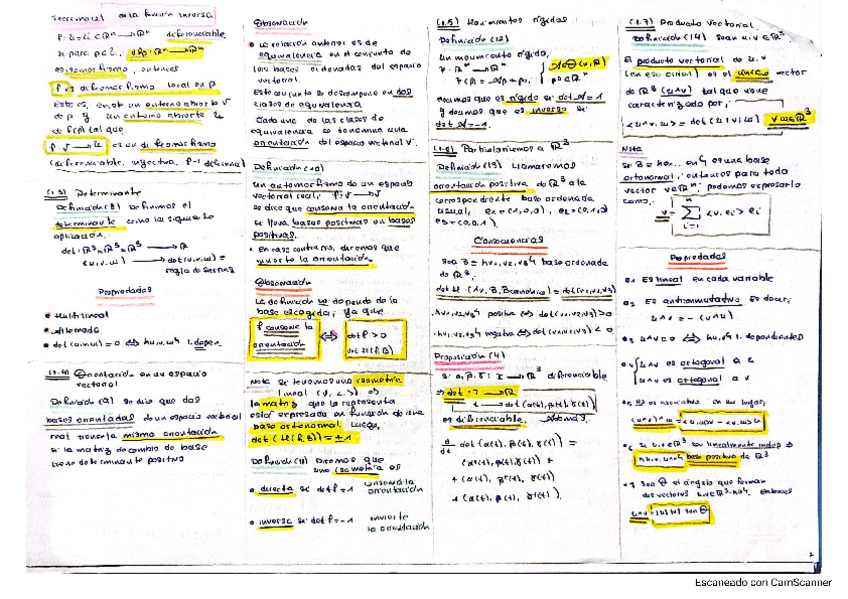 Teorema de la función inversa
diferenciable,
isomorfismo, entonces
f es difeomorfismo local en p
Esto es, existe un entorno abierto V
de p y un entorno abierto
de f(p) tal que
es un difeomorfismo
(diferenciable, inyectiva, f-1 diferenciable)
(1.3) Determinante
Definición (8) Definimos el
determinante como la siguiente
aplicación.
det: R³xR³xR³ → R
(u,v,w) → det(u,v,w) =
regla de Sarrus
Propiedades
• Multilineal
• Alternada
• det(u,v,w) = 0 ⇔ {u,v,w} l. depen.
(1.4) Orientación en un espacio
vectorial
Definición (9) Se dice que dos
bases ordenadas de un espacio vectorial
real tienen la misma orientación
si la matriz de cambio de base
tiene determinante positivo
Observación
• La relación anterior es de
equivalencia en el conjunto de
las bases ordenadas del espacio
vectorial.
Este conjunto se descompone en dos
clases de equivalencia
Cada una de las clases de
equivalencia se denomina una
orientación del espacio vectorial V.
Definición (10)
Un automorfismo de un espacio
vectorial real, f: V → V
se dice que conserva la orientación
si lleva bases positivas en bases
positivas.
• En caso contrario, diremos que
invierte la orientación.
Observación
La definición no depende de la
base escogida, ya que
f conserva la
orientación
⇔
det f > 0
Nota Si tenemos una isometría
lineal (V, < >) →
la matriz que la representa
está expresada en función de una
base ortonormal. Luego,
= ±1
Definición (11) Diremos que
una isometría es
• directa si det f = 1 conserva la orientación
• inversa si det f = -1 invierte la orientación
(1.5) Movimientos rígidos
Definición (12)
Un movimiento rígido,
f: Rⁿ → Rⁿ
f(p) = Ap + p₀
diremos que es rígido si det A = 1
y diremos que es inverso si
det A = -1.
(1.6) Particularicemos a R³
Definición (13) Llamaremos
orientación positiva de R³ a la
correspondiente base ordenada
usual, e₁ = (1,0,0), e₂ = (0,1,0)
e₃ = (0,0,1).
Consecuencias
Sea B = {v₁,v₂,v₃} base ordenada
de R³.
= det(v₁,v₂,v₃)
• {v₁,v₂,v₃} positiva ⇔ det(v₁,v₂,v₃) > 0
• {v₁,v₂,v₃} negativa ⇔ det(v₁,v₂,v₃) < 0
Proposición (4)
Si α,β,γ: I → R³ diferenciable
⇒ det: I → R
t → det(α(t),β(t),γ(t))
es diferenciable. Además,
d/dt det(α(t), β(t), γ(t)) =
(α'(t), β(t), γ(t)) +
+ (α(t), β'(t), γ(t))
+ (α(t), β(t), γ'(t)).
(1.7) Producto Vectorial
Definición (14) Sean u,v ∈ R³.
El producto vectorial de u,v
(en ese orden) es el único vector
de R³ (u∧v) tal que viene
caracterizado por,
<u∧v,w> = det(u,v,w) ∀w∈R³
Nota
Si B = {e₁,... eₙ} es una base
ortonormal, entonces para todo
vector v∈Rⁿ, podemos expresarlo
como,
v = Σ <v,eᵢ> eᵢ
i=1
Propiedades
•1 Es lineal en cada variable
•2 Es anticonmutativo. Es decir,
u∧v = -(v∧u)
•3 u∧v = 0 ⇔ {u,v} l. dependientes
•4 u∧v es ortogonal a u
u∧v es ortogonal a v
•6 Si u,v ∈ R³ son linealmente indep ⇒
{u,v,u∧v} base positiva de R³
•7 Sea θ el ángulo que forman
dos vectores u,v∈R³-{0}. Entonces
2
Escaneado con CamScanner